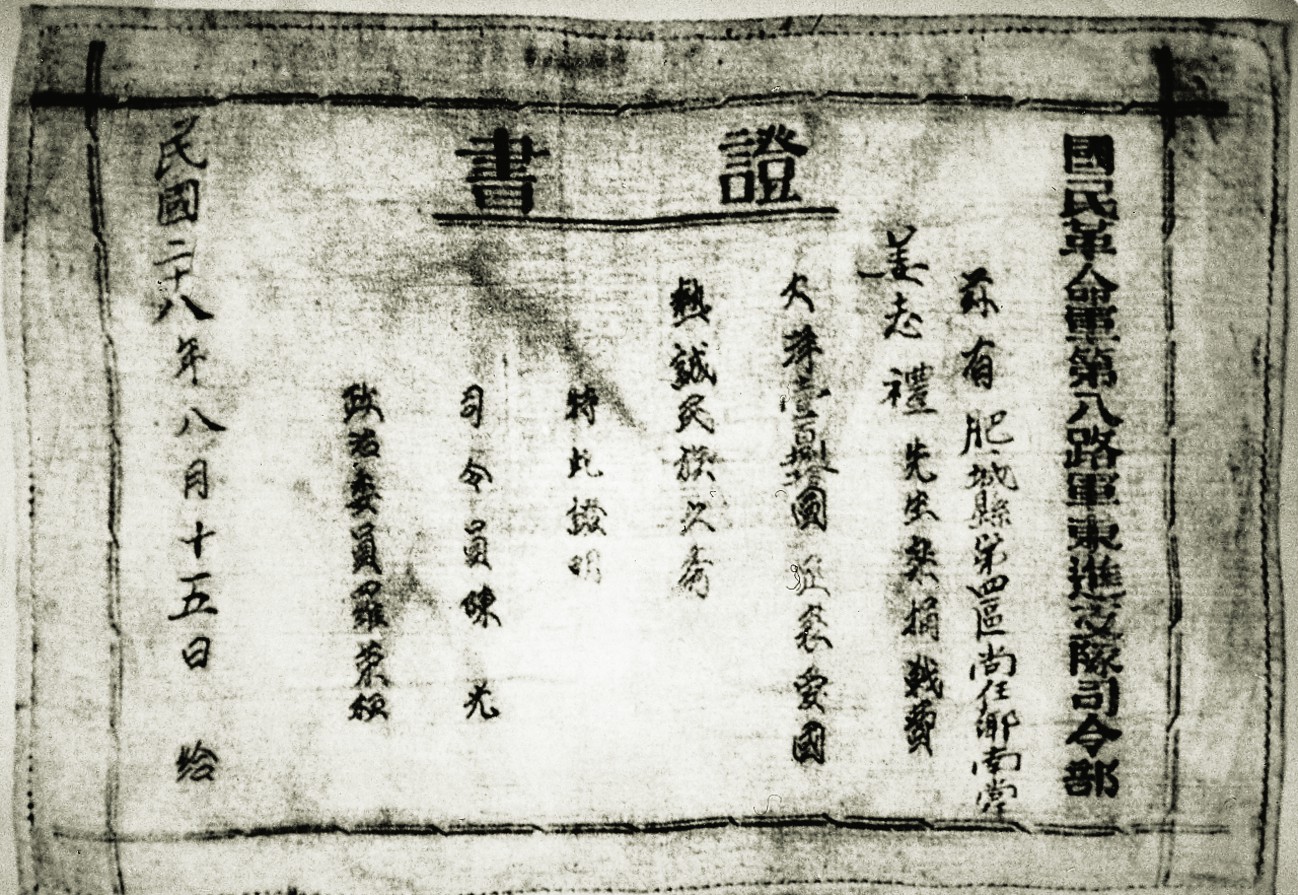 證書
國民革命軍第八路軍東進支隊司令部
茲有肥城縣第四區尚任鄉南棠
姜志禮先生樂捐戰費
大洋壹百 圓 愛國
熱誠民族
特此證明
司令員陳光
政治委員羅榮桓
民國二十八年八月十五日 給